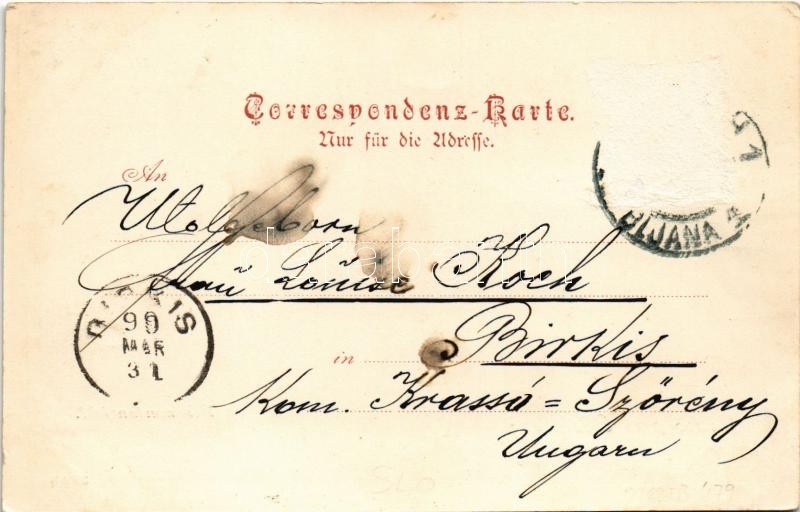 Correspondenz-Karte.
Nur für die Adresse.
An
Wolgeborn
Frau Louise Koch
in Birkis
Kom. Krassó=Szörény
Ungarn
BIRKIS
99
MAR
31
BLJANA 4
SLO